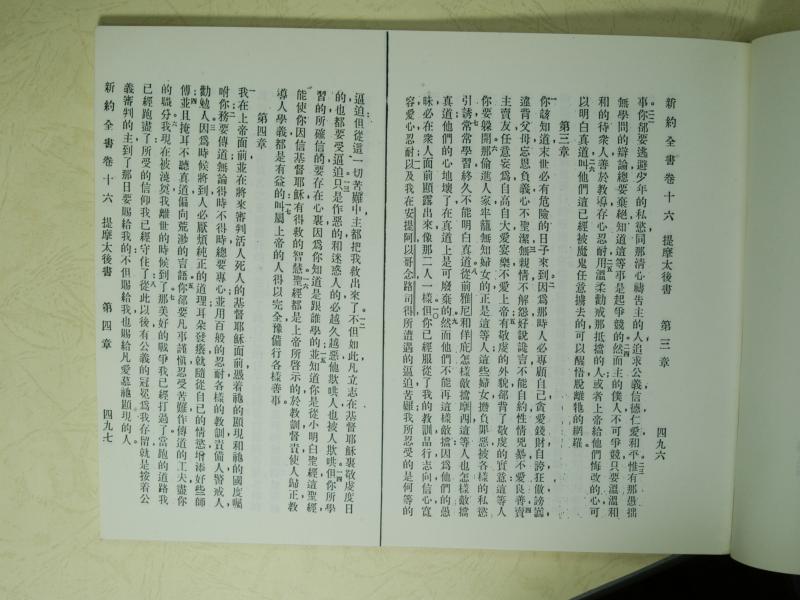 新約全書卷十六 提摩太後書 第三章 四九六
事你都要逃避少年的私慾同那清心禱告主的人追求公義信德仁愛和平惟有那愚拙
無學問的辯論總要棄絕知道這等事是起爭競的然而主的僕人不可爭競只要溫溫和
和的待衆人善於教導存心忍耐用溫柔勸戒那抵擋的人或者上帝給他們悔改的心可
以明白真道叫他們這已經被魔鬼任意擄去的可以醒悟脫離他的網羅
第三章
你該知道末世必有危險的日子來到因爲那時人必專顧自己貪愛錢財自誇狂傲謗讟
違背父母忘恩負義心不聖潔無親情不解怨好說讒言不能自約性情兇暴不愛良善賣
主賣友任意妄爲自高自大愛宴樂不愛上帝有敬虔的外貌卻背了敬虔的實意這等人
你要躲開那偷進人家牢籠無知婦女的正是這等人這些婦女擔負罪惡被各樣的私慾
引誘常常學習終久不能明白真道從前雅尼和佯庇怎樣敵擋摩西這等人也怎樣敵擋
真道他們的心地壞了在真道上是可廢棄的然而他們不能再這樣敵擋因爲他們的愚
昧必在衆人面前顯露出來像那二人一樣但你已經服從了我的教訓品行志向信心寬
容愛心忍耐以及我在安提阿以哥念路司得所遭遇的逼迫苦難我所忍受的是何等的
逼迫但從這一切苦難中主都把我救出來了不但如此凡立志在基督耶穌裏敬虔度日
的也都要受逼迫只是作惡的和迷惑人的必越久越惡他欺哄人也被人欺哄但你所學
習的所確信的要存在心裏因爲你知道是跟誰學的並知道你是從小明白聖經這聖經
能使你因信基督耶穌有得救的智慧聖經都是上帝所啓示的於教訓督責使人歸正教
導人學義都是有益的叫屬上帝的人得以完全豫備行各樣善事
第四章
我在上帝面前並在將來審判活人死人的基督耶穌面前憑着祂的顯現和祂的國度囑
咐你務要傳道無論得時不得時總要專心並用百般的忍耐各樣的教訓責備人警戒人
勸勉人因爲時候將到人必厭煩純正的道理耳朶發癢就隨從自已的情慾增添好些師
傅並且掩耳不聽真道偏向荒渺的言語你卻要凡事謹慎忍受苦難作傳道的工夫盡你
的職分我現在被澆奠我離世的時候到了那美好的戰爭我已經打過了當跑的道路我
已經跑盡了所受的信仰我已經守住了從此以後有公義的冠冕爲我存留就是按着公
義審判的主到了那日要賜給我的不但賜給我也賜給凡愛慕祂顯現的人
新約全書卷十六 提摩太後書 第四章 四九七